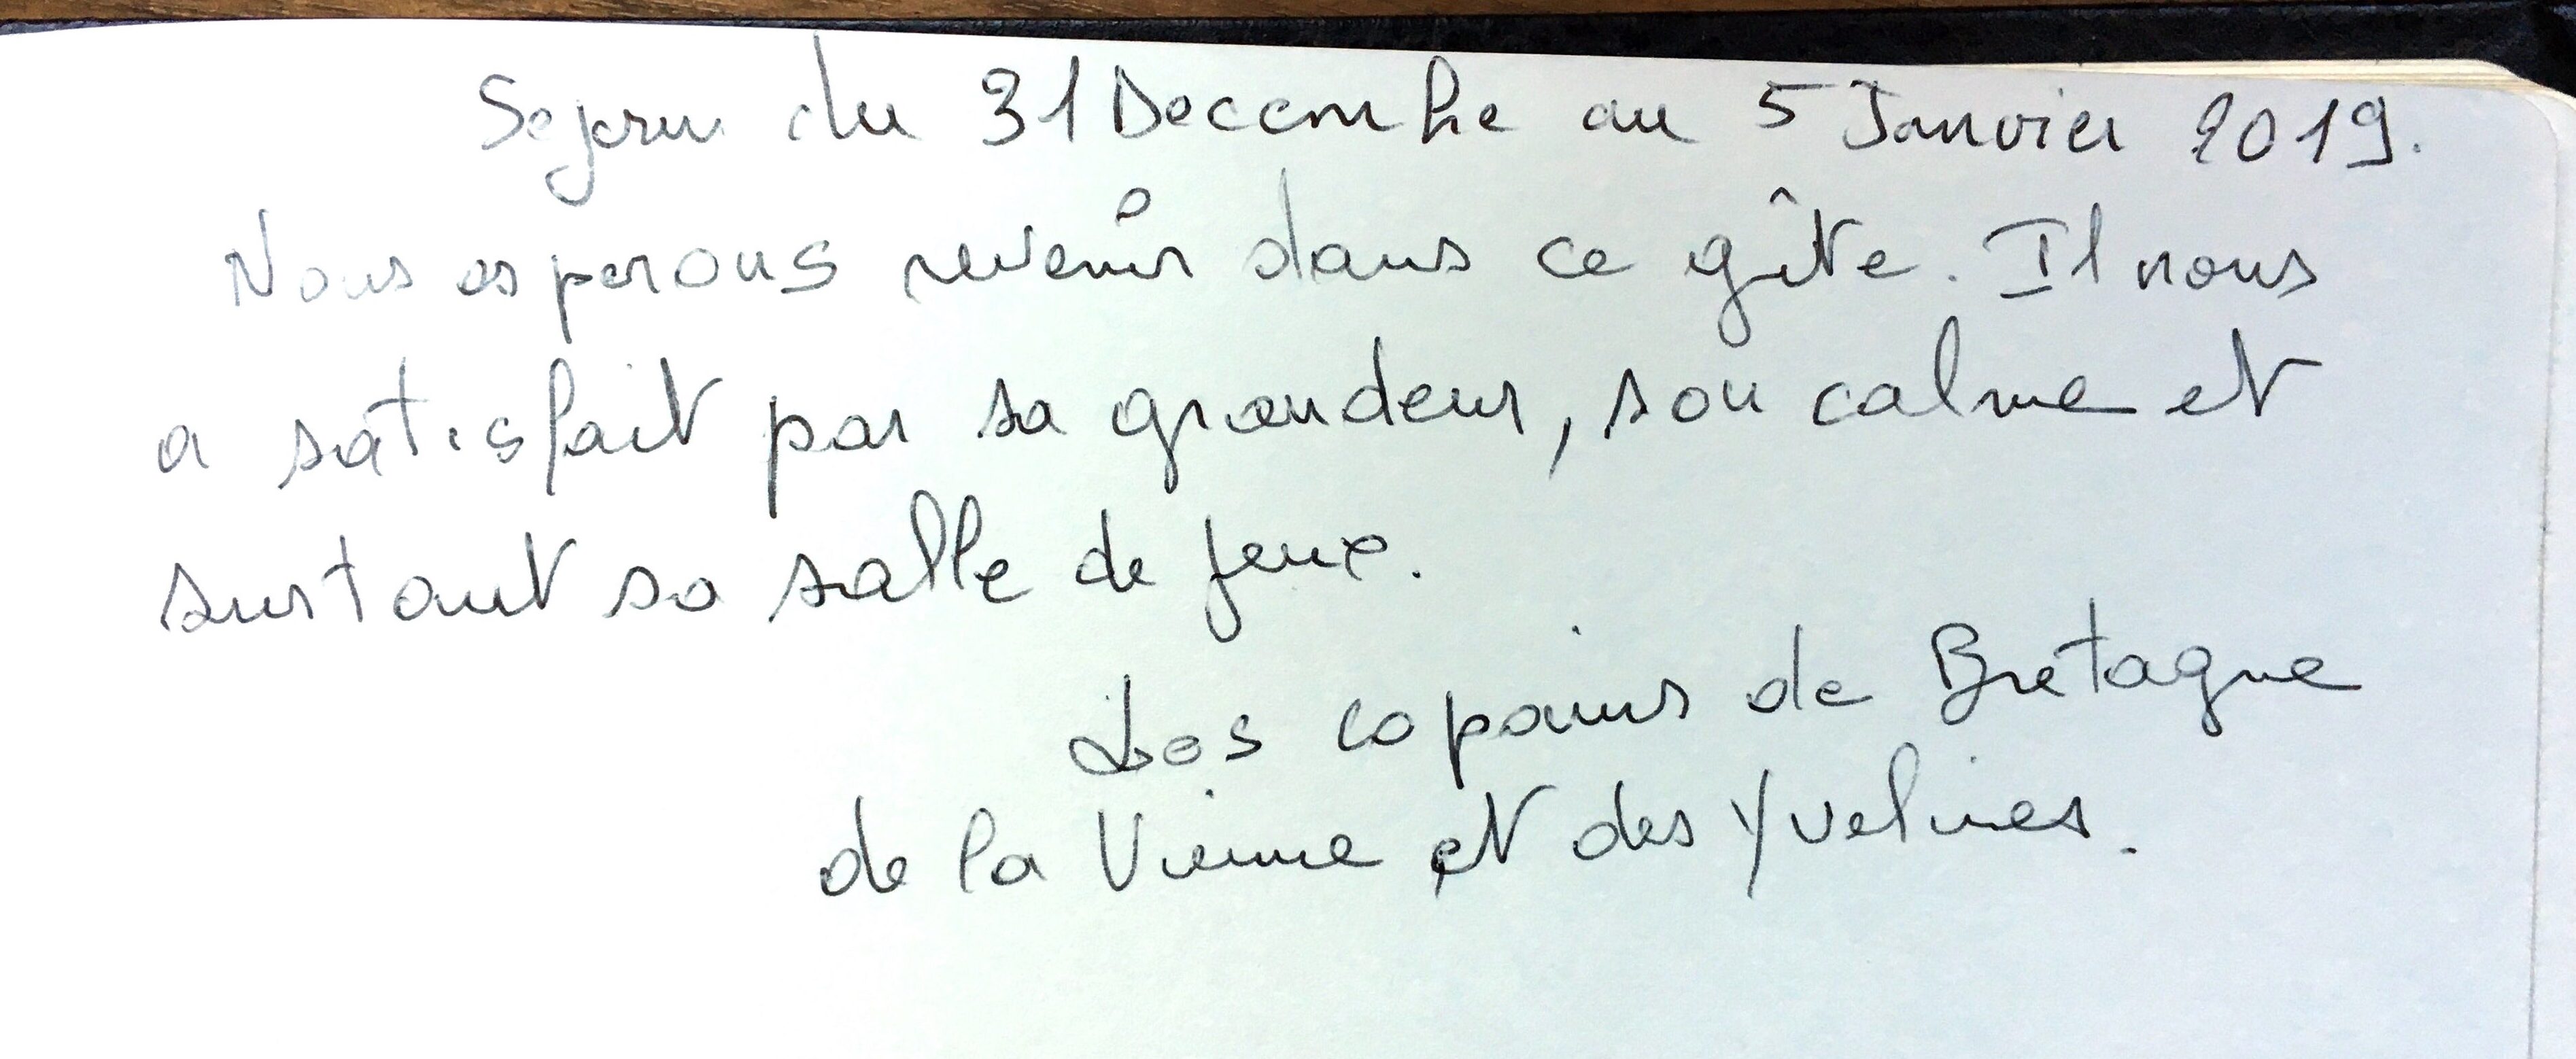 Sejour du 31 Decembre au 5 Janvier 2019.
Nous esperons revenir dans ce gîte. Il nous
a satisfait par sa grandeur, son calme et
surtout sa salle de jeux.
Les copains de Bretagne
de la Vienne et des Yvelines.